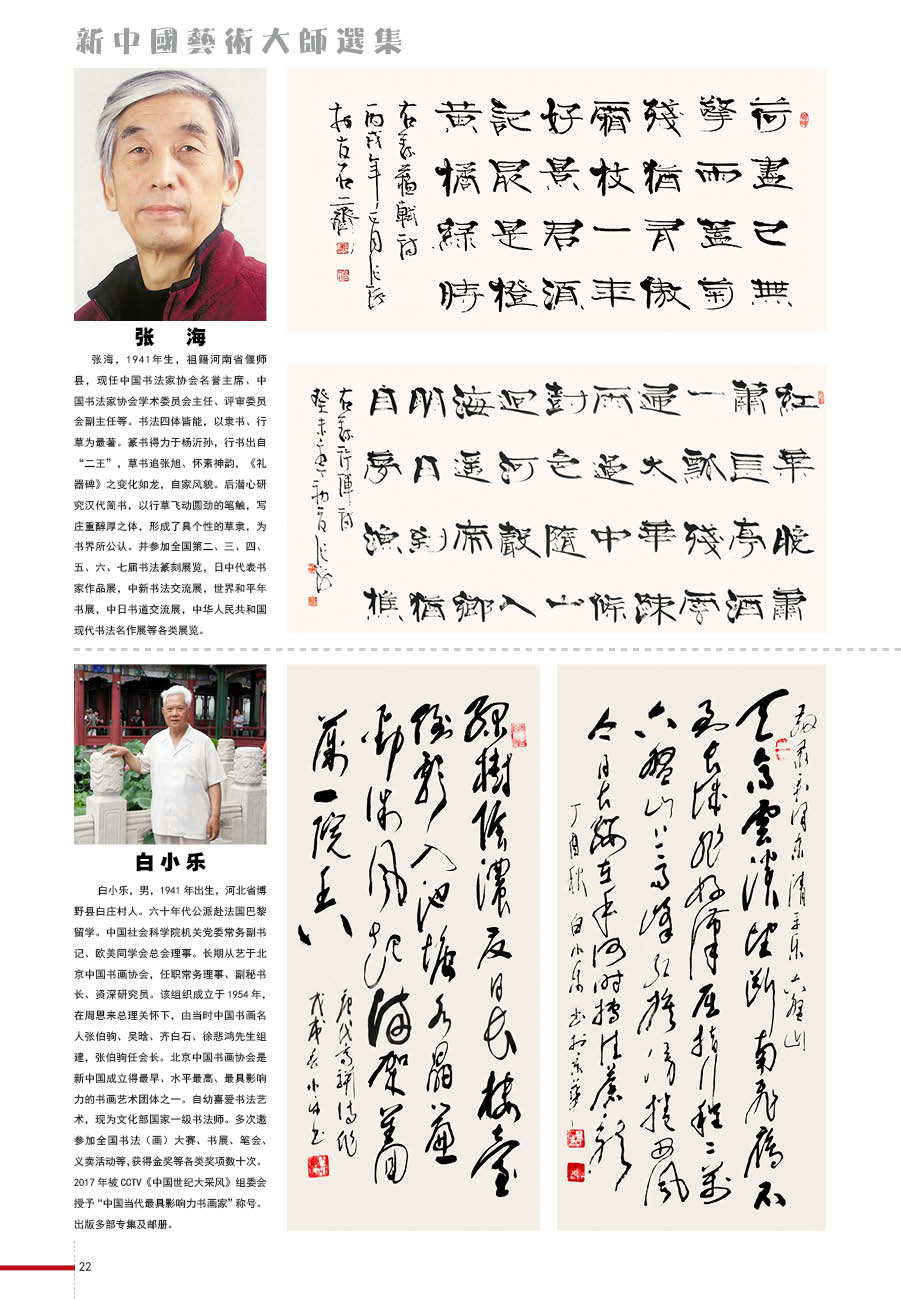 新中國藝術大師選集
张 海
张海，1941年生，祖籍河南省偃师
县，现任中国书法家协会名誉主席、中
国书法家协会学术委员会主任、评审委员
会副主任等。书法四体皆能，以隶书、行
草为最著。篆书得力于杨沂孙，行书出自
“二王”，草书追张旭、怀素神韵，《礼
器碑》之变化如龙，自家风貌。后潜心研
究汉代简书，以行草飞动圆劲的笔触，写
庄重醇厚之体，形成了具个性的草隶，为
书界所公认。并参加全国第二、三、四、
五、六、七届书法篆刻展览，日中代表书
家作品展，中新书法交流展，世界和平年
书展，中日书道交流展，中华人民共和国
现代书法名作展等各类展览。
荷盡已無
擎雨蓋菊
殘猶有傲
霜枝一年
好景君須
記最是橙
黄橘綠時
右录蘇軾詩
丙戌年正月张海
紅葉晚蕭
蕭長亭酒
一瓢殘雲
歸太華疎
雨過中條
樹色隨山
迥河聲入
海遥帝鄉
明日到猶
自夢漁樵
右录许渾詩
白小乐
白小乐，男，1941年出生，河北省博
野县白庄村人。六十年代公派赴法国巴黎
留学。中国社会科学院机关党委常务副书
记、欧美同学会总会理事。长期从艺于北
京中国书画协会，任职常务理事、副秘书
长、资深研究员。该组织成立于1954年，
在周恩来总理关怀下，由当时中国书画名
人张伯驹、吴晗、齐白石、徐悲鸿先生组
建，张伯驹任会长。北京中国书画协会是
新中国成立得最早、水平最高、最具影响
力的书画艺术团体之一。自幼喜爱书法艺
术，现为文化部国家一级书法师。多次邀
参加全国书法（画）大赛、书展、笔会、
义卖活动等，获得金奖等各类奖项数十次。
2017年被CCTV《中国世纪大采风》组委会
授予“中国当代最具影响力书画家”称号。
出版多部专集及邮册。
綠樹陰濃夏日长楼臺
倒影入池塘水晶簾
動微风起满架蔷
薇一院香
唐代高骈诗
戊戌春小乐书
敬录毛泽东清平乐六盘山
天高雲淡望断南飛雁不
到长城非好漢屈指行程二萬
六盘山上高峰红旗漫捲西风
今日长缨在手何时缚住蒼龍
丁酉秋白小乐书於京華
22